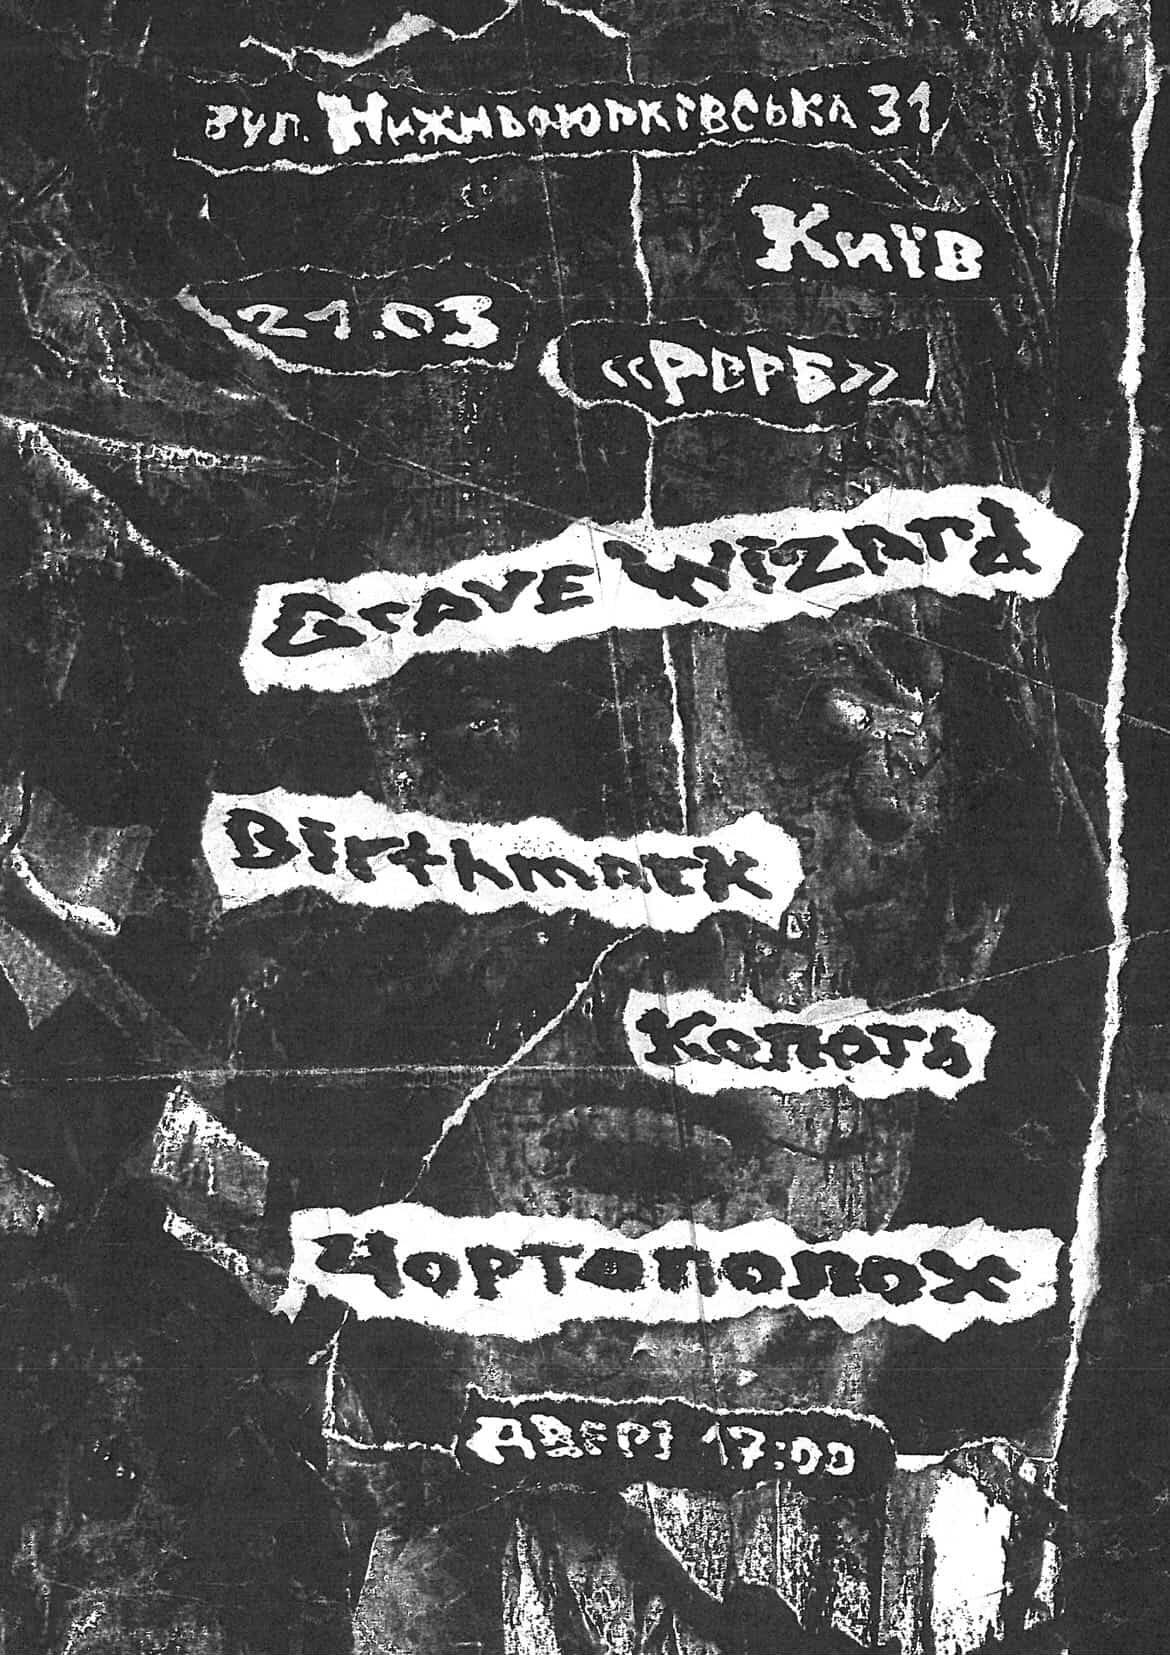 вул. Нижньоюрківська 31
Київ
21.03
«РВРБ»
Grave Wizard
Birthmark
Копоть
Чортополох
ДВЕРІ 17:00